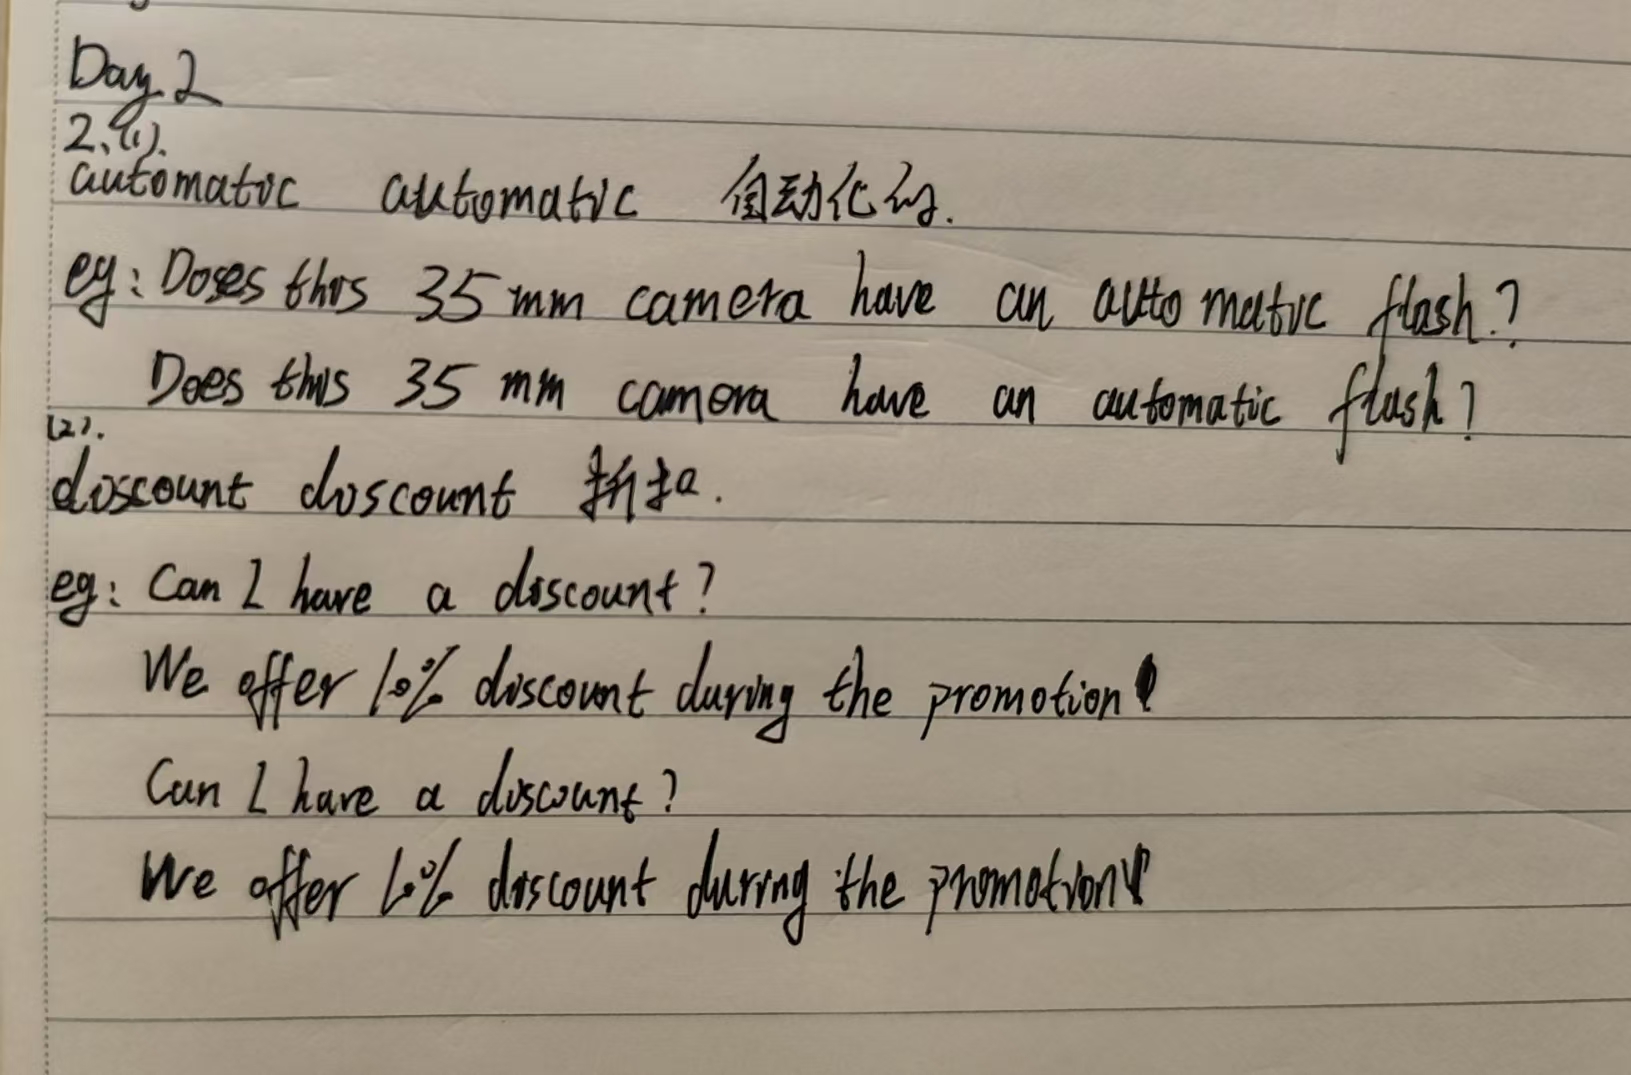 Day 2
2、(1).
automatic automatic 自动化的.
eg: Doses this 35 mm camera have an automatic flash?
Does this 35 mm camera have an automatic flash?
(2).
discount discount 折扣.
eg: Can I have a discount?
We offer 10% discount during the promotion
Can I have a discount?
We offer 10% discount during the promotion